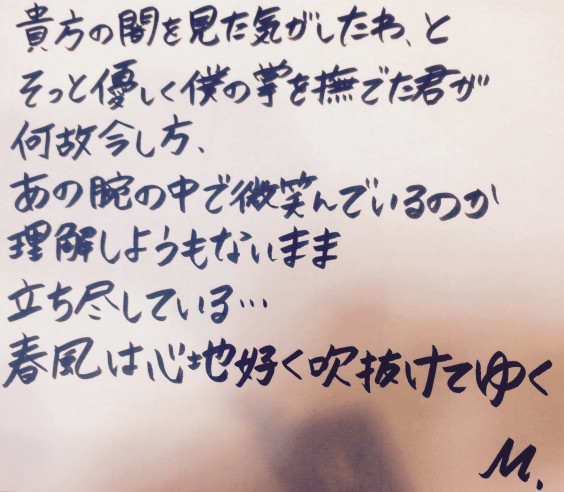 貴方の闇を見た気がしたわ、と
そっと優しく僕の掌を撫でた君が
何故今し方、
あの腕の中で微笑んでいるのか
理解しようもないまま
立ち尽している…
春風は心地好く吹抜けてゆく
M.